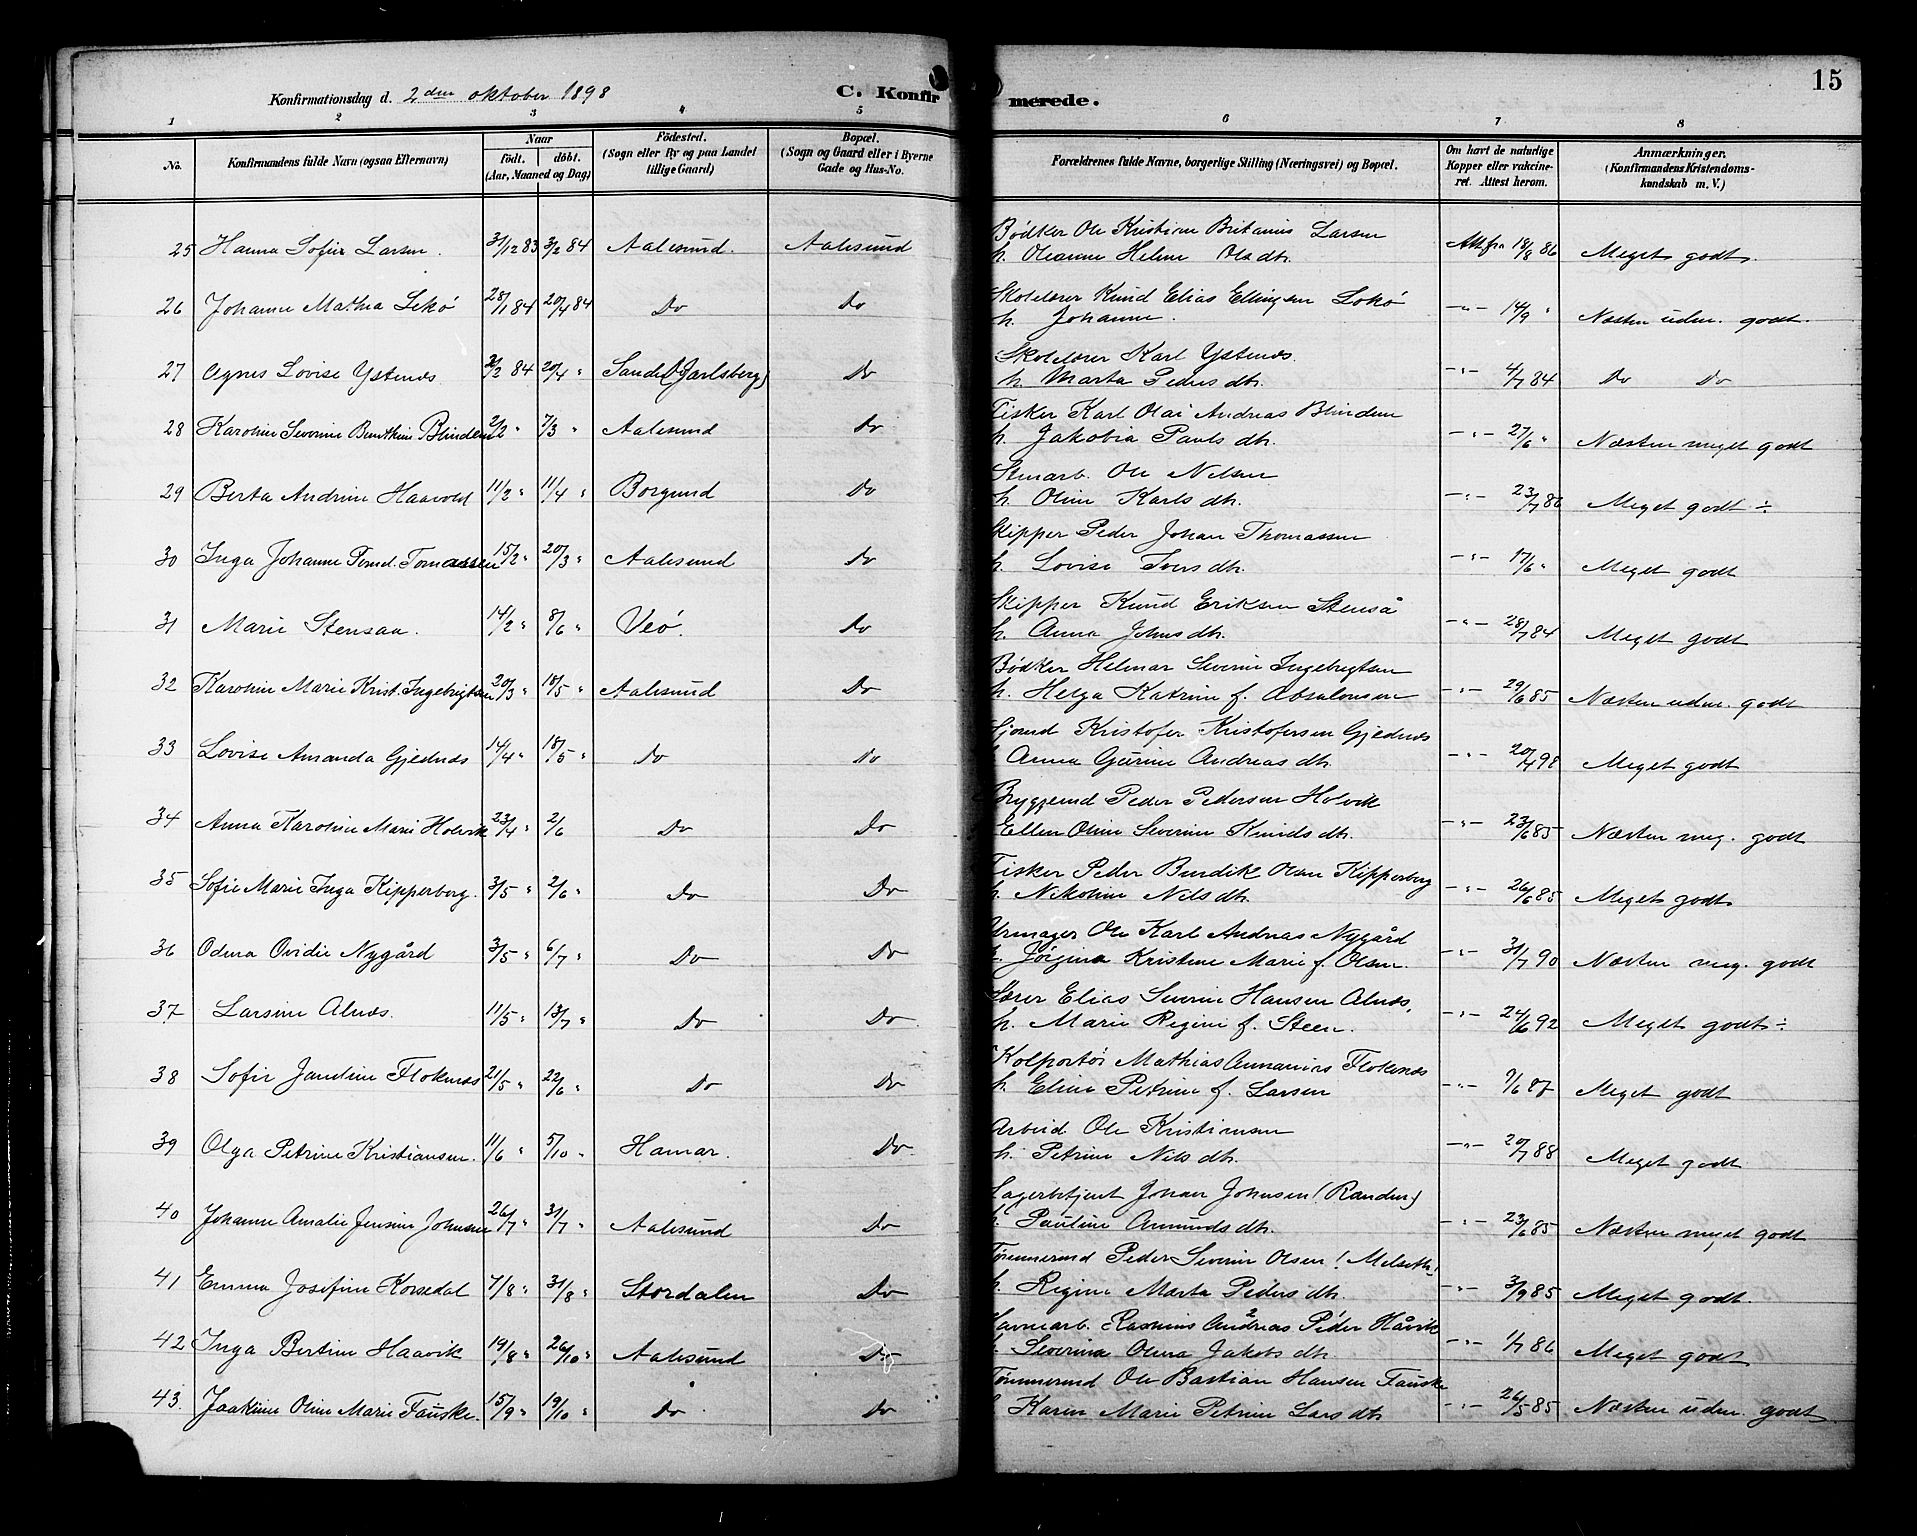 Konfirmationsdag d. 2den oktober 1898
C. Konfirmerede.
15
1 2 3 4 5 6 7 8
No.
Konfirmandens fulde Navn (ogsaa Efternavn)
Naar
født. døbt.
(Aar, Maaned og Dag)
Fødested.
(Sogn eller By og paa Landet tillige Gaard)
Bopæl.
(Sogn og Gaard eller i Byerne Gade og Hus-No.
Forældrenes fulde Navne, borgerlige Stilling (Næringsvei) og Bopæl.
Om havt de naturlige Kopper eller vakcineret. Attest herom.
Anmærkninger.
(Konfirmandens Kristendomskundskab m. V.)
25 Hanna Sofie Larsen. 31/12 83 3/2 84 Aalesund. Aalesund Bødker Ole Kristian Larsen Att. fra 18/8 86 Meget godt.
h. Oleanne Helene Olsdtr.
26 Johanne Mathea Lekø 28/1 84 20/4 84 Do Do Skolelærer Knud Elias Ellingsen Lokø -"- 14/9 " Næsten udm. godt.
h. Johanne.
27 Agnes Lovise Ystenæs 2/2 84 20/4 " Sande (Jarlsberg) Do Skolelærer Karl Ystenæs. -"- 4/7 84 Do Do
h. Marta Pedersdtr.
28 Karoline Severine Bendikke Blindem 2/2 " 7/3 " Aalesund Do Fisker Karl Olai Andreas Blindem -"- 27/6 " Næsten meget godt
h. Jakobia Paulsdtr.
29 Berta Andrine Haavold 11/2 " 11/4 " Borgund Do Stenarb. Ole Nelsen -"- 23/7 86 Meget godt ÷
h. Oline Karlsdtr.
30 Inga Johanne Tomassen 15/2 " 20/3 " Aalesund Do Skipper Peder Johan Thomassen -"- 17/6 " Meget godt
h. Lovise Iversdtr.
31 Marie Stensaa. 14/2 " 8/6 " Veø. Do Skipper Knud Eriksen Stenså -"- 28/7 84 Meget godt
h. Anna Johnsdtr.
32 Karoline Marie Krist. Ingebrigtsen 20/3 " 18/5 " Aalesund Do Bødker Helmar Severin Ingebrigtsen -"- 29/6 85 Næsten udm. godt
h. Helga Katrine f. Absalonsen
33 Lovise Amanda Gjednæs 14/4 " 18/5 " Do Do Sjømd Kristofer Kristofersen Gjednæs -"- 20/4 98 Meget godt
h. Anna Gurine Andreasdtr.
34 Anna Karoline Marie Holvik 23/4 " 2/6 Do Do Bryggemd Peder Pedersen Holvik -"- 23/6 85 Næsten meg. godt
Ellen Oline Severine Knudsdtr.
35 Sofie Marie Inga Kipperberg. 3/5 " 2/6 " Do Do Fisker Peder Bendik Olsen Kipperberg -"- 26/6 85 Meget godt.
h. Nikoline Nilsdtr.
36 Odina Ovidie Nygård 3/5 " 6/7 " Do Do Urmager Ole Karl Andreas Nygård -"- 31/7 90 Næsten meg. godt
h. Jørgina Kristine Marie f. Olsen.
37 Larsine Alnæs. 11/5 " 13/7 " Do Do Lærer Elias Severin Hansen Alnæs, -"- 24/6 92 Meget godt ÷
h. Marie Regine f. Steen.
38 Sofie Jandine Flokenæs 21/5 " 22/6 " Do Do Kolportør Mathias Annanias Flokenæs -"- 9/6 87 Meget godt
h. Eline Petrine f. Larsen
39 Olga Petrine Kristiansen. 11/6 " 5/10 " Hamar. Do Arbeid. Ole Kristiansen -"- 20/7 88 Meget godt
h. Petrine Nilsdtr.
40 Johanne Amalie Jensine Johnsen 26/7 " 31/7 " Aalesund Do Lagerbetjent Johan Johnsen (Randem) -"- 23/6 85 Næsten meget godt
h. Pauline Amundsdtr.
41 Emma Josefine Korsedal 7/8 " 31/8 " Stordalen Do Tømmermd Peder Severin Olsen ! Melseth! -"- 3/9 85 Meget godt.
h. Regine Marta Pedersdtr.
42 Inga Bertine Haavik 19/8 " 26/10 " Aalesund Do Rasmus Andreas Peder Håvik -"- 1/7 86 Meget godt
h. Severina Olina Jakobsdtr.
43. Joakime Oline Marie Fauske. 15/9 " 19/10 " Do Do Tømmermd Ole Bastian Hansen Fauske -"- 26/5 85 Næsten udm. godt
h. Karen Marie Petrine Larsdtr